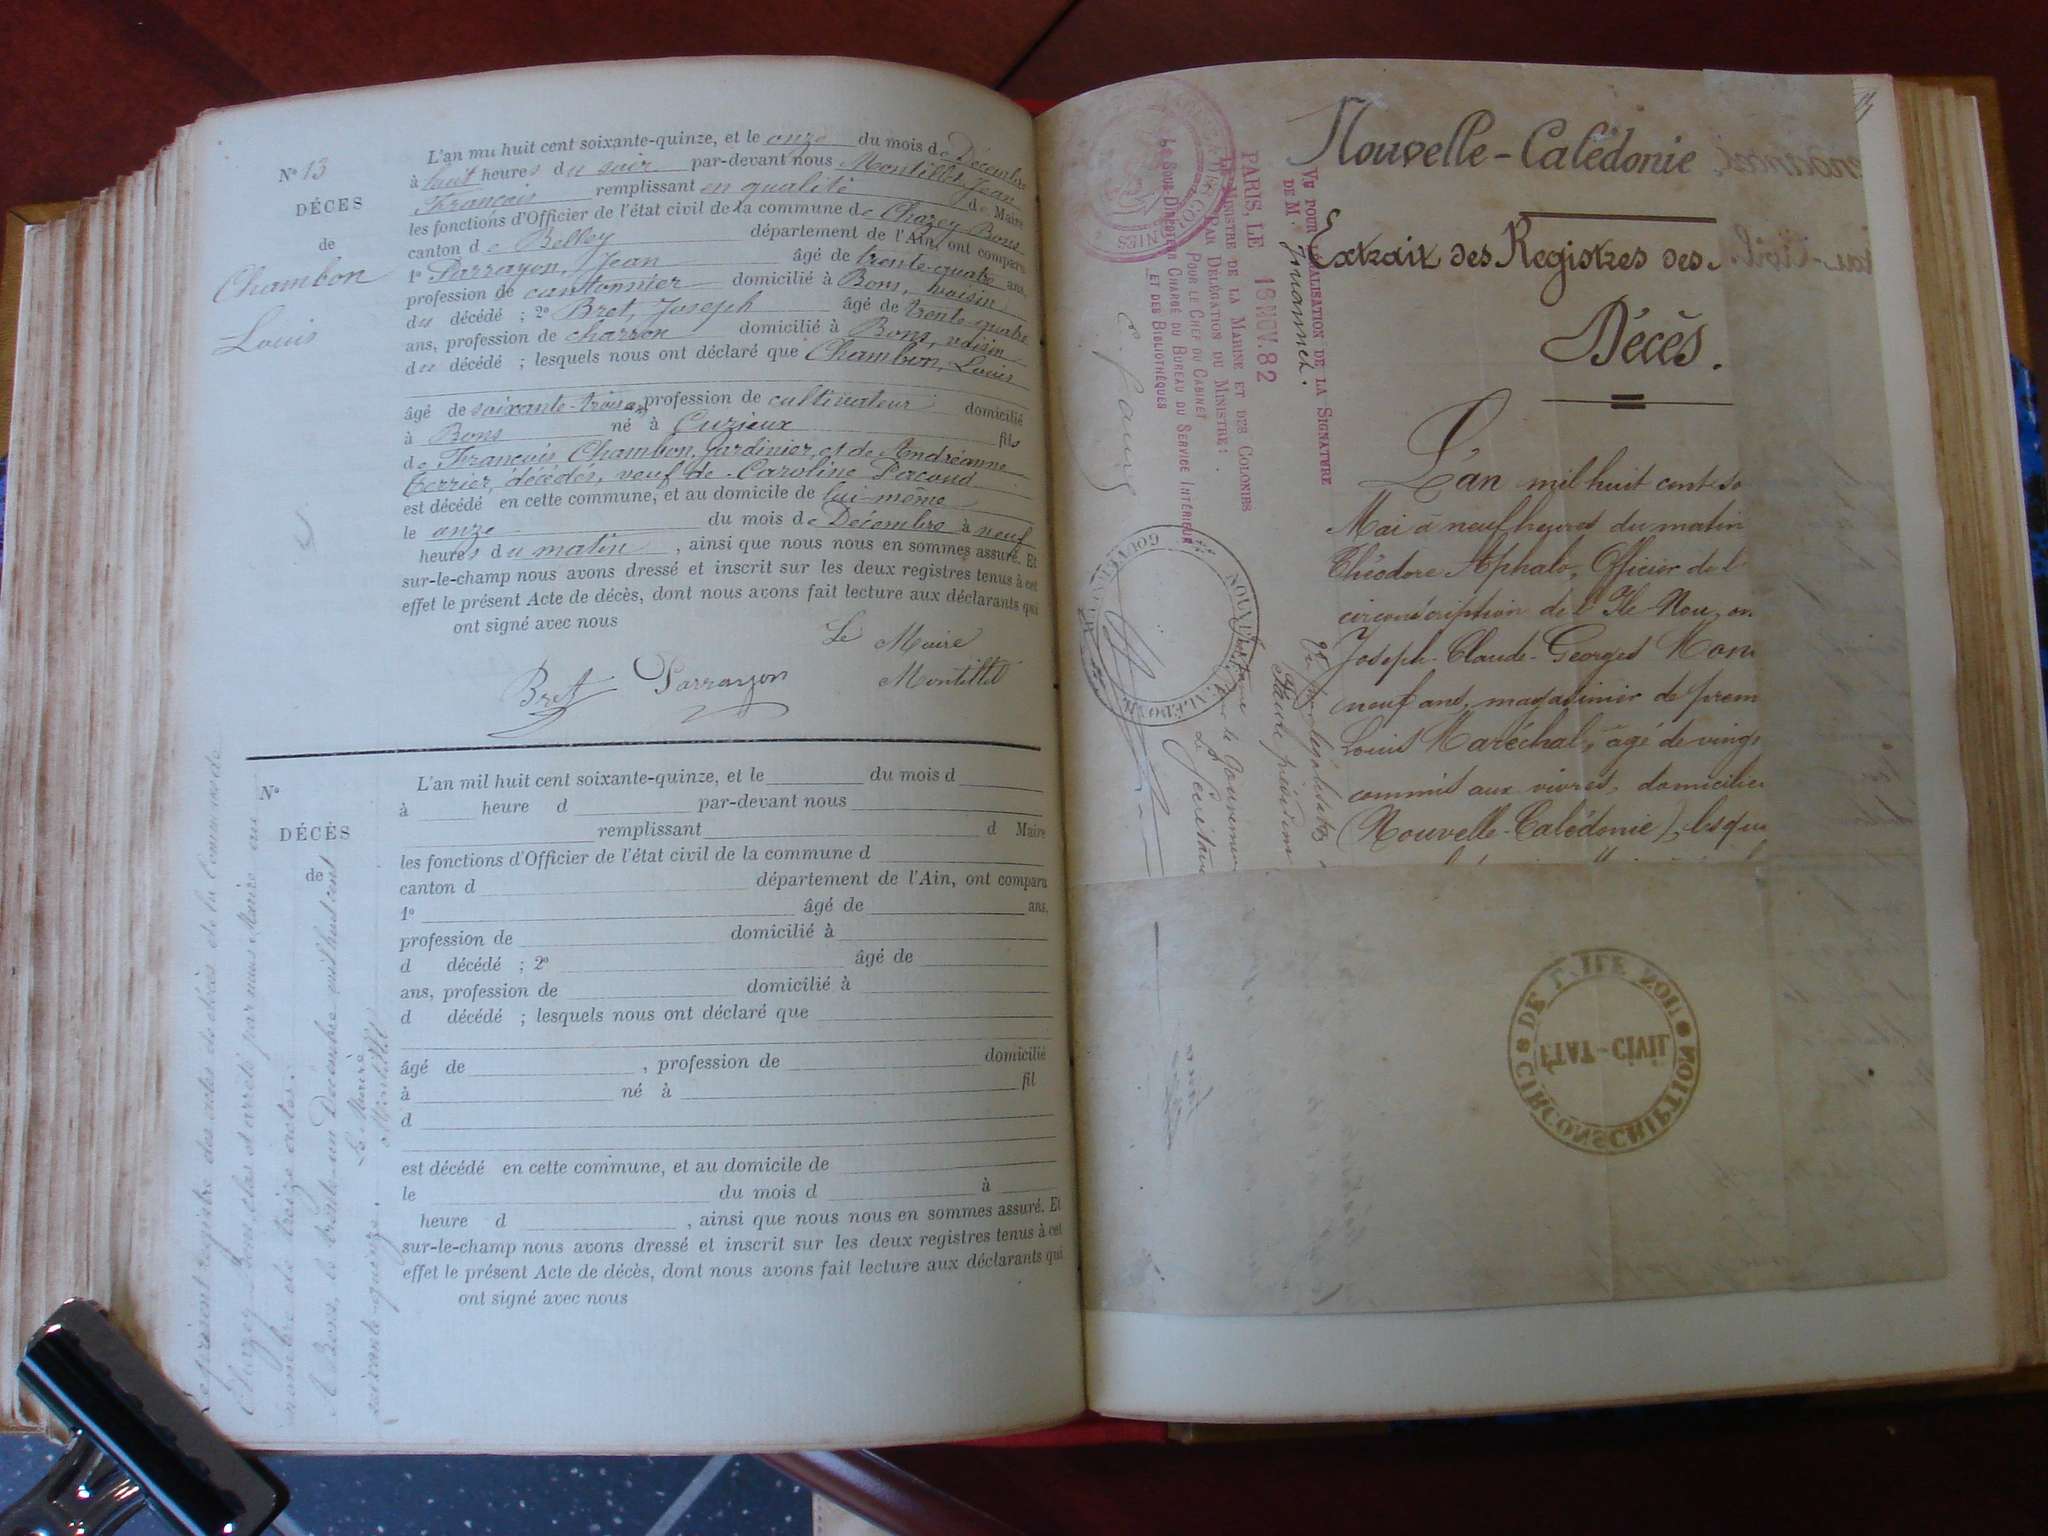 Nº 13
DÉCES
de
Chambon
Louis
L'an mil huit cent soixante-quinze, et le onze du mois de Décembre
à huit heures du soir par-devant nous Montillet, Jean
François remplissant en qualité de Maire
les fonctions d'Officier de l'état civil de la commune de Chazey-Bons
canton de Belley département de l'Ain, ont comparu
1º Parrayon, Jean âgé de trente-quatre ans,
profession de cantonnier domicilié à Bons, voisin
du décédé ; 2º Bret, Joseph âgé de trente-quatre
ans, profession de charron domicilié à Bons, voisin
du décédé ; lesquels nous ont déclaré que Chambon, Louis
âgé de soixante-trois ans, profession de cultivateur domicilié
à Bons né à Cuzieux fils
de François Chambon, jardinier, et de Andréanne
Terrier, décédés, veuf de Caroline
est décédé en cette commune, et au domicile de lui-même
le onze du mois de Décembre à neuf
heures du matin, ainsi que nous nous en sommes assuré. Et
sur-le-champ nous avons dressé et inscrit sur les deux registres tenus à cet
effet le présent Acte de décès, dont nous avons fait lecture aux déclarants qui
ont signé avec nous
Le Maire
Bret Parrayon Montillet
Nº
DÉCÈS
de
L'an mil huit cent soixante-quinze, et le du mois d
à heure d par-devant nous
remplissant d Maire
les fonctions d'Officier de l'état civil de la commune d
canton d département de l'Ain, ont comparu
1º âgé de ans,
profession de domicilié à
d décédé ; 2º âgé de
ans, profession de domicilié à
d décédé ; lesquels nous ont déclaré que
âgé de , profession de domicilié
à né à fil
d
est décédé en cette commune, et au domicile de
le du mois d à
heure d , ainsi que nous nous en sommes assuré. Et
sur-le-champ nous avons dressé et inscrit sur les deux registres tenus à cet
effet le présent Acte de décès, dont nous avons fait lecture aux déclarants qui
ont signé avec nous
Le présent registre des actes de décès de la Commune de
Chazey-Bons, clos et arrêté par nous Maire au
nombre de treize actes.
A Bons, le trente-un Décembre mil huit cent
soixante-quinze.
Le Maire
Montillet
Nouvelle-Calédonie
Extrait des Registres des
Décès.
L'an mil huit cent so
Mai à neuf heures du matin
Théodore Aphalo, Officier de l
circonscription de l'Ile Nou, on
Joseph-Claude-Georges Mon
neuf ans, magasinier de prem
Louis Maréchal, âgé de ving
commis aux vivres, domicilié
(Nouvelle-Calédonie), lesque
Vu pour légalisation de la Signature
de M.
PARIS, LE 18 NOV. 82
Le Ministre de la Marine et des Colonies
Par Délégation du Ministre:
Pour le Chef du Cabinet
Le Sous-Directeur Chargé du Bureau du Service Intérieur
et des Bibliothèques
Vu pour légalisation
Le Secrétaire
CIRCONSCRIPTION DE L'ILE NOU
ÉTAT-CIVIL